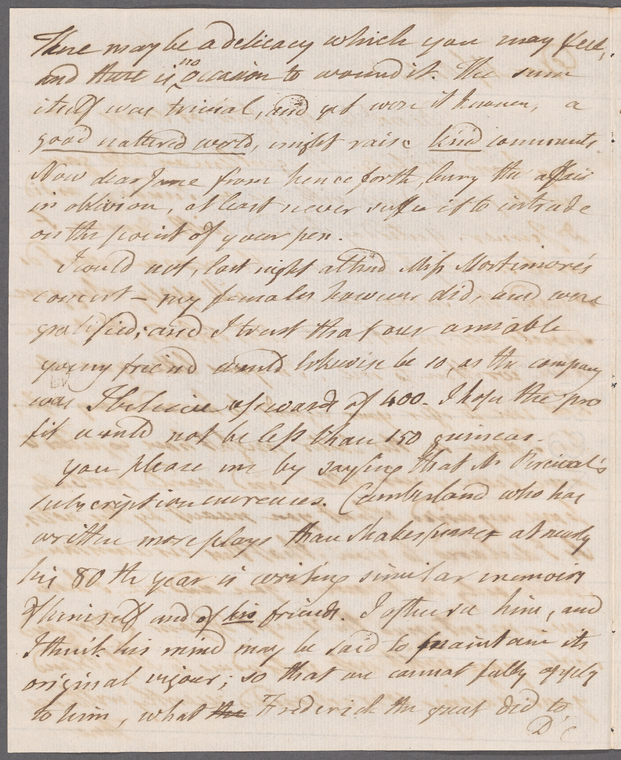 There may be a delicacy which you may feel,
and there is no occasion to wound it. The sum
itself was trivial, and yet were it known, a
good nattured world, might raise kind comments.
Now dear Jane from hence forth, bury the affair
in oblivion, at least never suffer it to intrude
on the point of your pen.
I could not, last night attend Miss Mortimore's
concert - my females however did, and were
gratified; and I trust that our amiable
young friend would likewise be so, as the company
was I believe upwards of 400. I hope the pro
fit would not be less than 150 guineas.
You please me by saying that Mr Percival's
subscription encreases. Cumberland who has
written more plays than Shakespeare at nearly
his 80th year is writing similar memoirs
of himself and of his friends. I often see him, and
I think his mind may be said to maintain its
original vigour; so that we cannot fully apply
to him, what the Frederick the great did to
D'